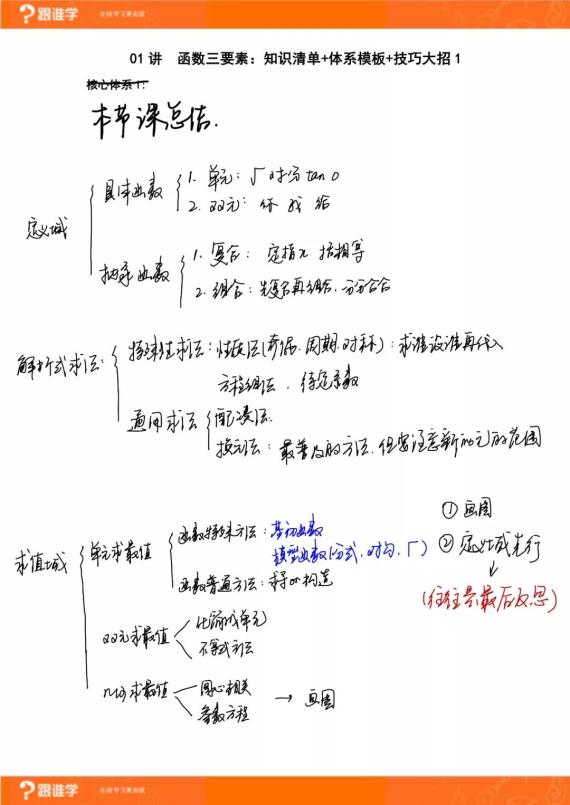 跟谁学 在线学习更高效
01 讲 函数三要素：知识清单+体系模板+技巧大招 1
核心体系 1：
本节课总结.
定义域
具体函数
1. 单元：√ 对 分 tan 0
2. 双元：你 我 给
抽象函数
1. 复合：定指x 括相等
2. 组合：先复合再组合，分分合合
解析式求法：
特殊性求法：性质法(奇偶.周期.对称)：求谁设谁再代入
方程组法，待定系数
通用求法
配凑法.
换元法：最普及的方法.但要注意新的元的范围
① 画图
② 定义域先行
(往往是最后反思)
求值域
单元求最值
函数特殊方法：基初函数
模型函数(分式.对勾.√)
函数普通方法：求导or构造
双元求最值
化简成单元
不等式方法
几何求最值
圆心相关
参数方程
→ 画图
跟谁学 在线学习更高效